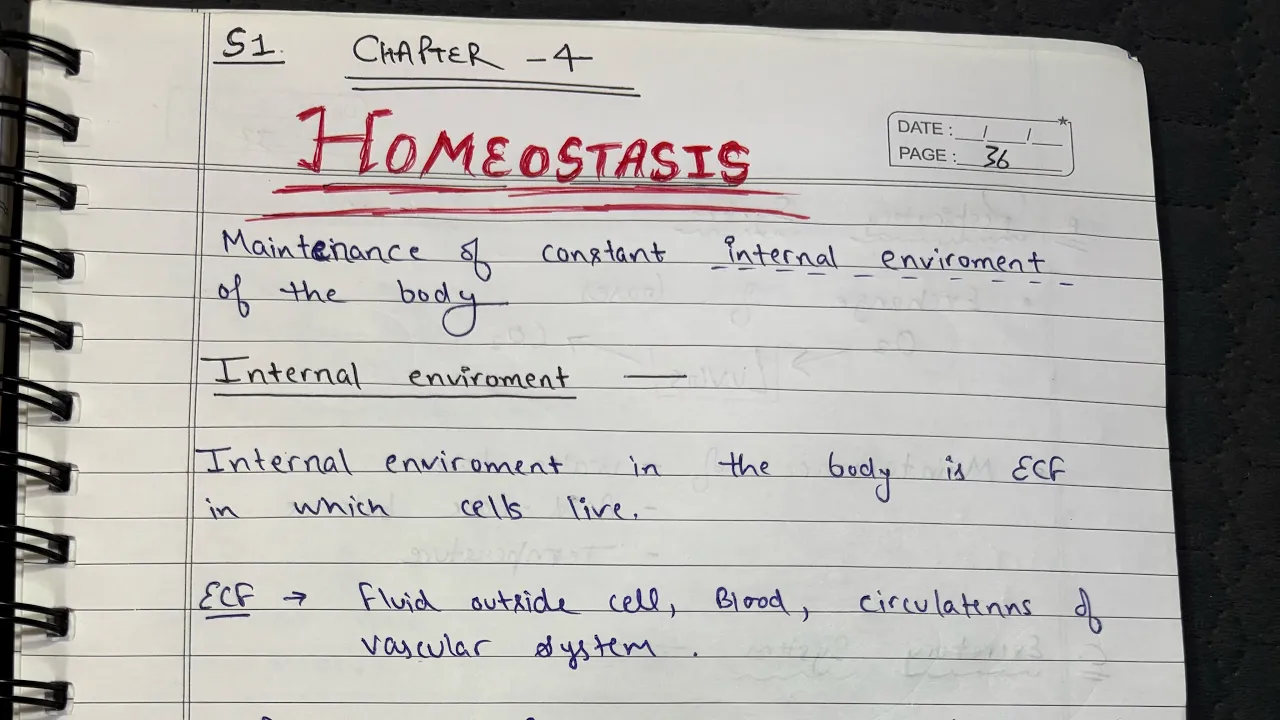 S1. CHAPTER - 4
HOMEOSTASIS
DATE: / /
PAGE: 36
Maintenance of constant internal enviroment
of the body
Internal enviroment —
Internal enviroment in the body is ECF
in which cells live.
ECF → Fluid outside cell, Blood, circulatenns of
vascular system.